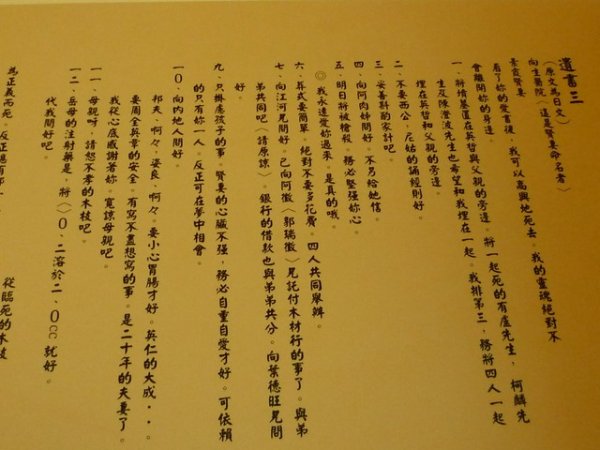 遺書三
（原文為日文）
向生藥院（這是賢妻命名者）
素霞賢妻
看了妳的愛書後，我可以高興地死去，我的靈魂絕對不
會離開妳的身邊。
一、將墳墓置在英哲與父親的旁邊。將一起死的有盧先生，柯麟先
生及陳澄波先生也希望和我埋在一起。我排第三，務將四人一起
埋在英哲和父親的旁邊。
二、不要西公。尼姑的誦經則好。
三、妥善料的家計吧。
四、向阿肉姊問好。不另給她信。
五、明日將被槍殺。務必堅強妳心
◎我永遠愛妳過來。是真的哦。
六、葬式要簡單。絕對不要多花費。四人共同舉辦。
七、向江河兄問好。已向阿徵（郭瑞徵）兄託付木材行的事了。與弟
弟共同吧（請原諒）。銀行的借款也與弟弟共分。向葉德旺兄問
好。
九、只掛慮孩子的事。賢妻的心臟不強，務必自重自愛才好。可依賴
的只有妳一人。反正可在夢中相會。
一〇、向內地人問好。
邦夫，啊々，姿良，啊々。要小心胃腸才好。英仁的大成・・。
要周全英章的安全。有寫不盡想寫的事。是二十年的夫妻了。
我從心底感謝著妳。寬諒母親吧。
一一、母親呀，請恕不孝的木枝吧。
一二、岳母的注射藥是，將（）〇、二溶於二、〇cc就好。
代我問好吧。
從臨死的木枝
為正義而死，反正總有